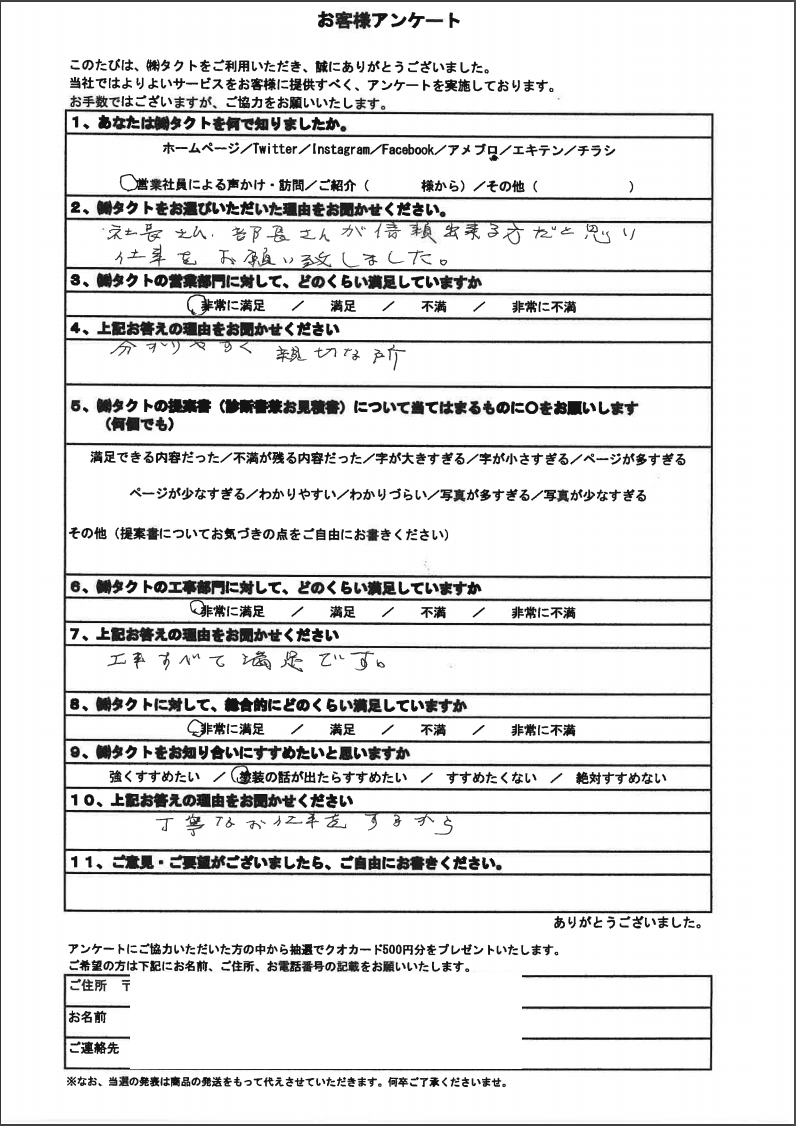 お客様アンケート
このたびは、㈱タクトをご利用いただき、誠にありがとうございました。
当社ではよりよいサービスをお客様に提供すべく、アンケートを実施しております。
お手数ではございますが、ご協力をお願いいたします。
１、あなたは㈱タクトを何で知りましたか。
ホームページ／Twitter／Instagram／Facebook／アメブロ／エキテン／チラシ
営業社員による声かけ・訪問／ご紹介（　　　様から）／その他（　　　　　　）
２、㈱タクトをお選びいただいた理由をお聞かせください。
社長さん、部長さんが信頼出来る方だと思い
仕事をお願い致しました。
３、㈱タクトの営業部門に対して、どのくらい満足していますか
非常に満足　／　満足　／　不満　／　非常に不満
４、上記お答えの理由をお聞かせください
分かりやすく 親切な所
５、㈱タクトの提案書（診断書兼お見積書）について当てはまるものに〇をお願いします
（何個でも）
満足できる内容だった／不満が残る内容だった／字が大きすぎる／字が小さすぎる／ページが多すぎる
ページが少なすぎる／わかりやすい／わかりづらい／写真が多すぎる／写真が少なすぎる
その他（提案書についてお気づきの点をご自由にお書きください）
６、㈱タクトの工事部門に対して、どのくらい満足していますか
非常に満足　／　満足　／　不満　／　非常に不満
７、上記お答えの理由をお聞かせください
工事すべて満足です。
８、㈱タクトに対して、総合的にどのくらい満足していますか
非常に満足　／　満足　／　不満　／　非常に不満
９、㈱タクトをお知り合いにすすめたいと思いますか
強くすすめたい　／　塗装の話が出たらすすめたい　／　すすめたくない　／　絶対すすめない
１０、上記お答えの理由をお聞かせください
丁寧なお仕事をするから
１１、ご意見・ご要望がございましたら、ご自由にお書きください。
ありがとうございました。
アンケートにご協力いただいた方の中から抽選でクオカード500円分をプレゼントいたします。
ご希望の方は下記にお名前、ご住所、お電話番号の記載をお願いいたします。
ご住所　〒
お名前
ご連絡先
※なお、当選の発表は商品の発送をもって代えさせていただきます。何卒ご了承くださいませ。